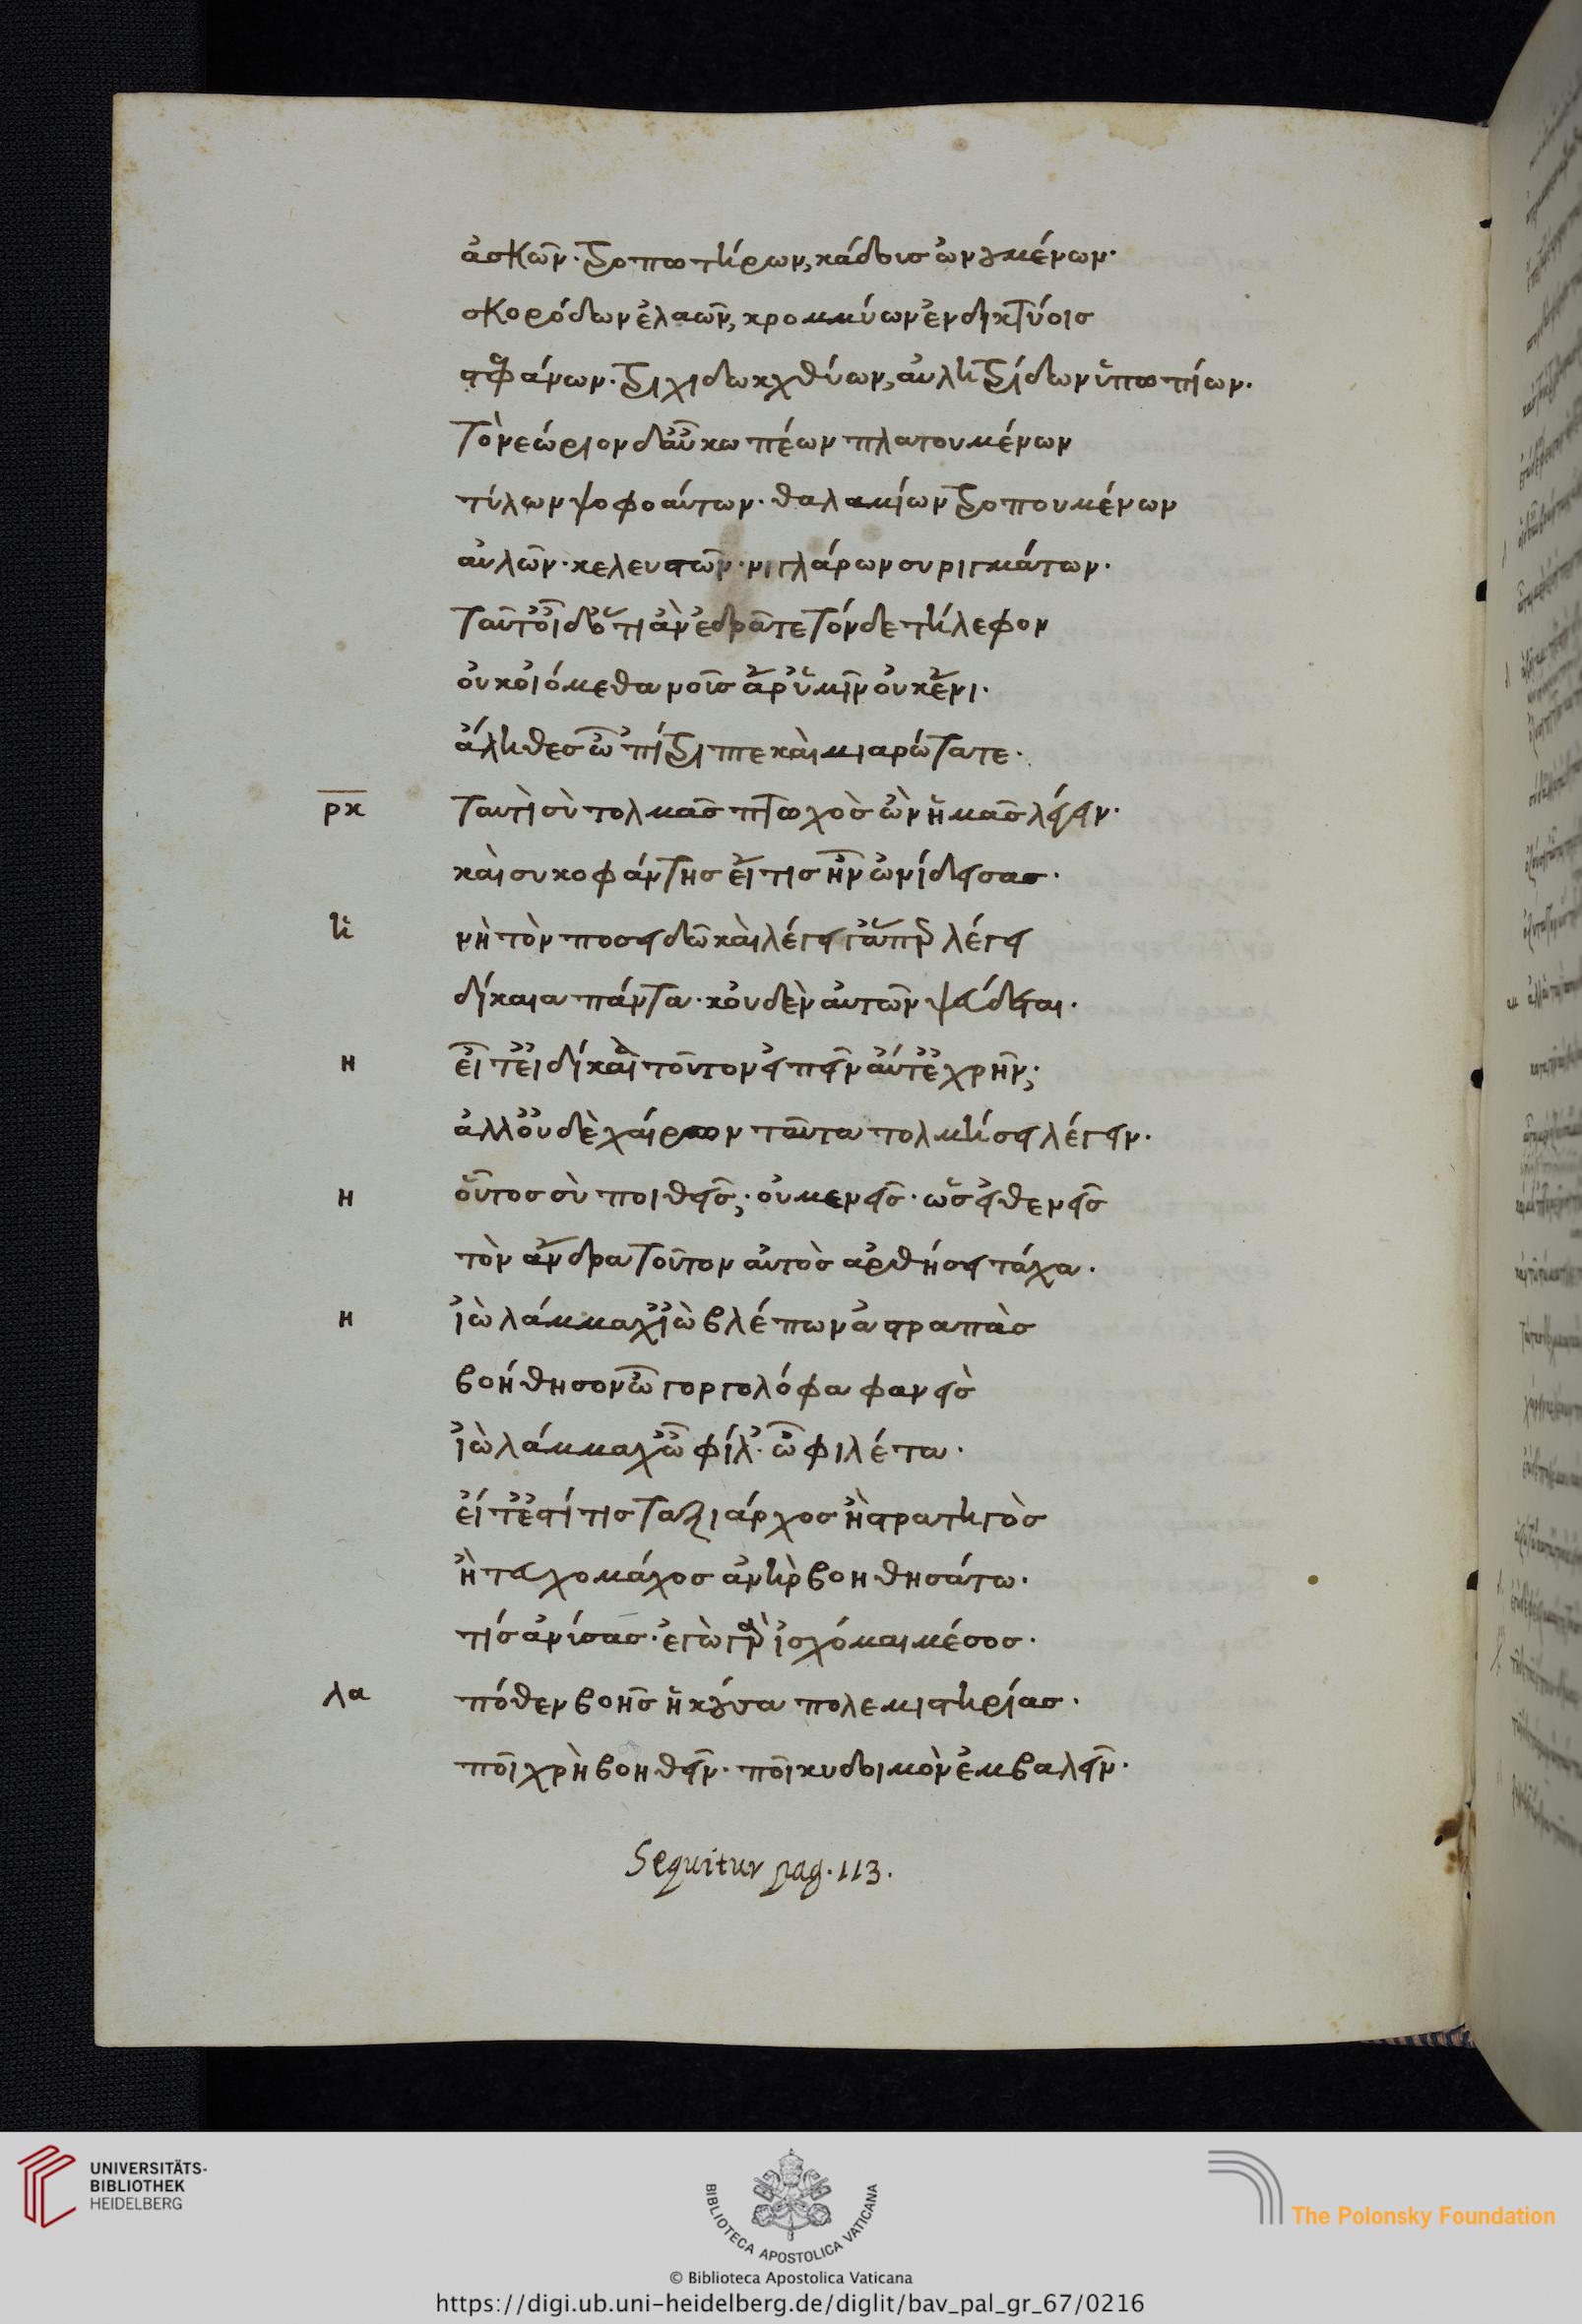 ἀσκῶν. τροπωτήρων, κάδους ὠνουμένων.
σκορόδων ἐλαῶν, κρομμύων ἐν δικτύοις
στεφάνων. τριχίδων ἰχθύων, αὐλητρίδων ὑπωπίων.
τὸ νεώριον δ' αὖ κωπέων πλατουμένων
τύλων ψοφούντων. θαλαμίων τροπουμένων
αὐλῶν. κελευστῶν. νιγλάρων συριγμάτων.
ταῦτ' οἶδ' ὅτι ἂν ἐδρᾶτε τόνδε τήλεφον
οὐκ οἰόμεθα νοῦς ἄρ' ὑμῖν οὐκ ἔνι.
ἄληθες ὦ 'πίτριπτε καὶ μιαρώτατε.
ρκ ταυτὶ σὺ τολμᾶς πτωχὸς ὢν ἡμᾶς λέγειν.
καὶ συκοφάντης εἴ τις ἦν ὠνείδισας.
νὴ τὸν ποσειδῶ καὶ λέγει γ' ἅπερ λέγει
δίκαια πάντα. κοὐδὲν αὐτῶν ψεύδεται.
η εἶτ' εἰ δίκαια τοῦτον εἰπεῖν αὔτ' ἐχρῆν;
ἀλλ' οὐδὲ χαίρων ταῦτα τολμήσει λέγειν.
η οὗτος σὺ ποῖ θεῖς; οὐ μενεῖς. ὡς εἰ θενεῖς
τὸν ἄνδρα τοῦτον αὐτὸς ἀρθήσει τάχα.
η ἰὼ λάμμαχ' ἰὼ βλέπων ἀστραπὰς
βοήθησον ὦ γοργολόφα φανεὶς
ἰὼ λάμμαχ' ὦ φίλ'. ὦ φιλέτα.
εἴτ' ἔστί τις ταξίαρχος ἢ στρατηγὸς
ἢ τειχομάχος ἀνὴρ βοηθησάτω.
τίς ἀνύσας. ἐγὼ γὰρ ἴσχομαι μέσος.
λα πόθεν βοῆς ἤκουσα πολεμιστηρίας.
ποῖ χρὴ βοηθεῖν. ποῖ κυδοιμὸν ἐμβαλεῖν.
Sequitur pag. 113.
UNIVERSITÄTS-
BIBLIOTHEK
HEIDELBERG
BIBLIOTECA APOSTOLICA VATICANA
© Biblioteca Apostolica Vaticana
The Polonsky Foundation
https://digi.ub.uni-heidelberg.de/diglit/bav_pal_gr_67/0216